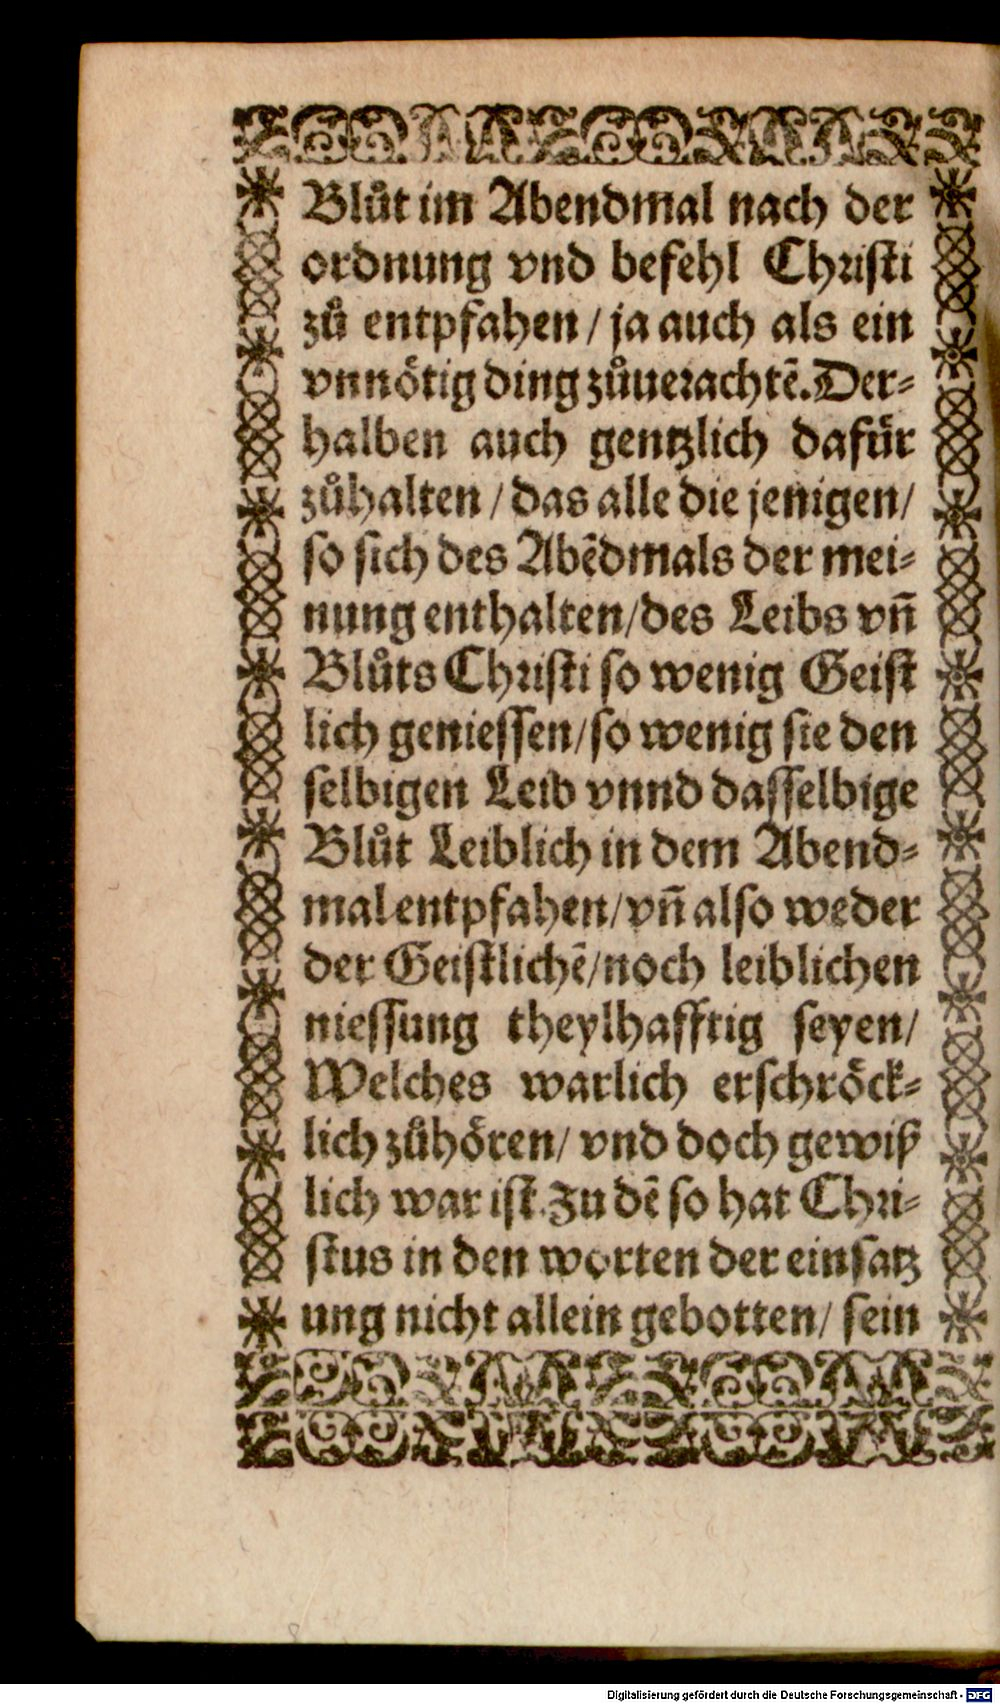 Blůt im Abendmal nach der
ordnung vnd befehl Christi
zů entpfahen / ja auch als ein
vnnötig ding zůuerachtẽ. Der⸗
halben auch gentzlich dafür
zůhalten / das alle die jenigen /
so sich des Abẽdmals der mei⸗
nung enthalten / des Leibs vñ
Blůts Christi so wenig Geist
lich geniessen / so wenig sie den
selbigen Leib vnnd dasselbige
Blůt Leiblich in dem Abend⸗
mal entpfahen / vñ also weder
der Geistlichẽ / noch leiblichen
niessung theylhafftig seyen /
Welches warlich erschröck⸗
lich zůhören / vnd doch gewiß
lich war ist. Zu dẽ so hat Chri⸗
stus in den worten der einsatz
ung nicht allein gebotten / sein
Digitalisierung gefördert durch die Deutsche Forschungsgemeinschaft - DFG